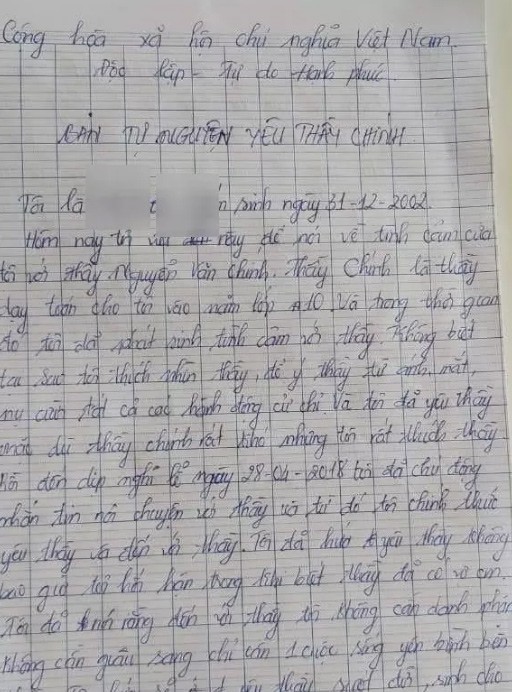 Cộng hòa xã hội chủ nghĩa Việt Nam.
Độc lập - Tự do Hạnh phúc.
BẢN TỰ NGUYỆN YÊU THẦY CHÍNH
Tôi là n sinh ngày 31-12-2002.
Hôm nay tôi này để nói về tình cảm của
tôi với thầy Nguyễn Văn Chính. Thầy Chính là thầy
dạy toán cho tôi vào năm lớp A10. Và trong thời gian
đó tôi đã phát sinh tình cảm với thầy. Không biết
tại sao tôi thích nhìn thầy, để ý thầy từ ánh mắt,
nụ cười tất cả các hành động cử chỉ. Và tôi đã yêu thầy
mặc dù thầy chính rất khó nhưng tôi rất thích thầy
đến dịp nghỉ lễ ngày 28-04-2018 tôi đã chủ động
nhắn tin nói chuyện với thầy và từ đó tôi chính thức
yêu thầy và đến với thầy. Tôi đã hứa yêu thầy không
bao giờ tôi hối hận trong khi biết thầy đã có vợ con.
Tôi đã rằng đến với thầy tôi không cần danh phận
không cần giàu sang chỉ cần 1 cuộc sống yên bình bên
thầy suốt đời, sinh cho